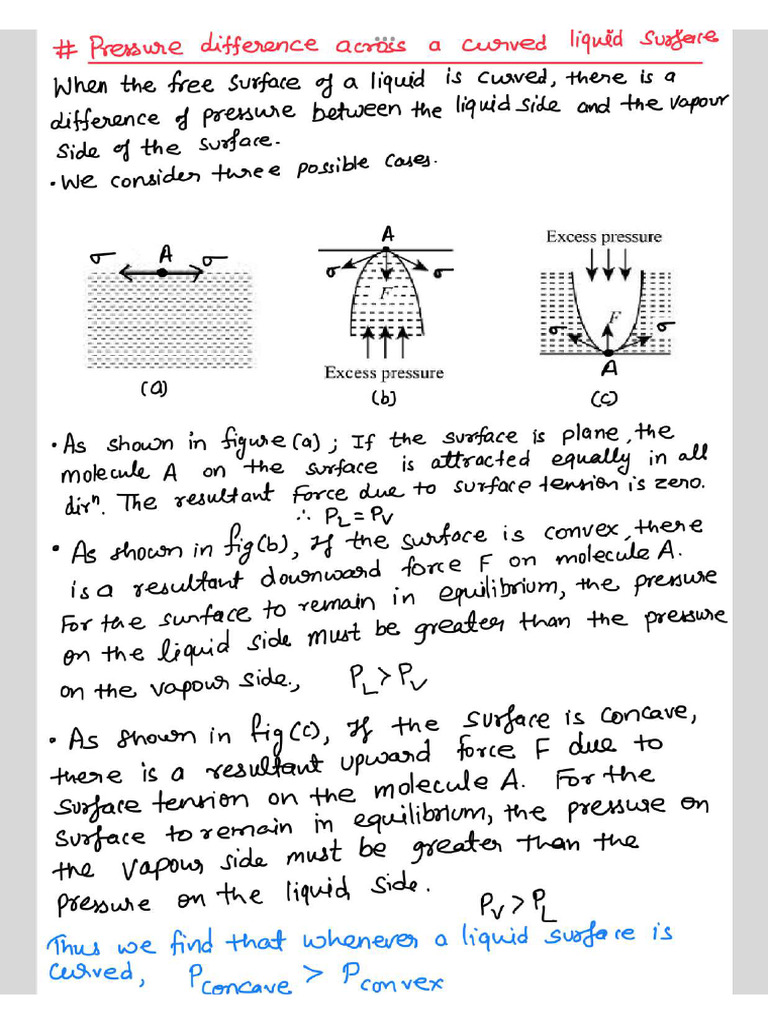 # Pressure difference across a curved liquid surface
When the free surface of a liquid is curved, there is a
difference of pressure between the liquid side and the vapour
side of the surface.
• We consider three possible cases.
σ A σ
(a)
A
σ σ
F
Excess pressure
(b)
Excess pressure
F
σ σ
A
(c)
• As shown in figure (a) ; If the surface is plane, the
molecule A on the surface is attracted equally in all
dirⁿ. The resultant force due to surface tension is zero.
∴ P_L = P_V
• As shown in fig (b), If the surface is convex, there
is a resultant downward force F on molecule A.
For the surface to remain in equilibrium, the pressure
on the liquid side must be greater than the pressure
on the vapour side., P_L > P_V
• As shown in fig (c), If the surface is concave,
there is a resultant upward force F due to
surface tension on the molecule A. For the
surface to remain in equilibrium, the pressure on
the vapour side must be greater than the
pressure on the liquid side.
P_V > P_L
Thus we find that whenever a liquid surface is
curved, P_concave > P_convex